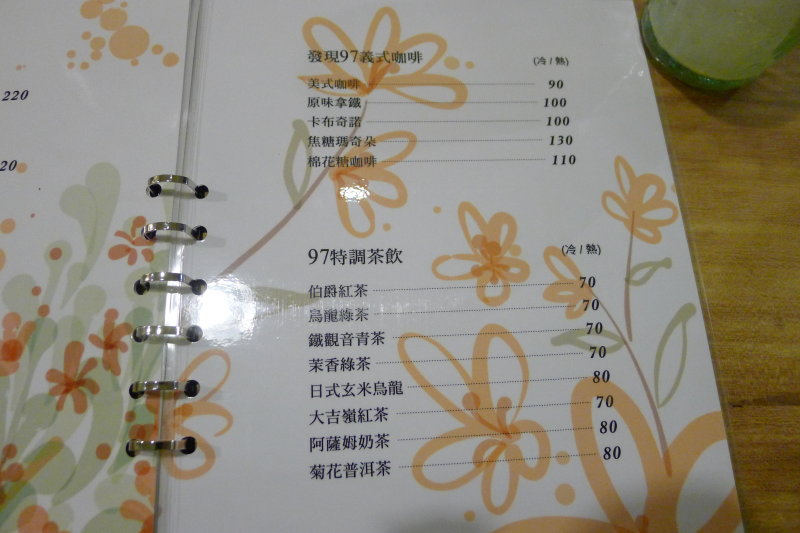 220
20
發現97義式咖啡 (冷/熱)
美式咖啡 90
原味拿鐵 100
卡布奇諾 100
焦糖瑪奇朵 130
棉花糖咖啡 110
97特調茶飲 (冷/熱)
伯爵紅茶 70
烏龍綠茶 70
鐵觀音青茶 70
茉香綠茶 70
日式玄米烏龍 80
大吉嶺紅茶 70
阿薩姆奶茶 80
菊花普洱茶 80